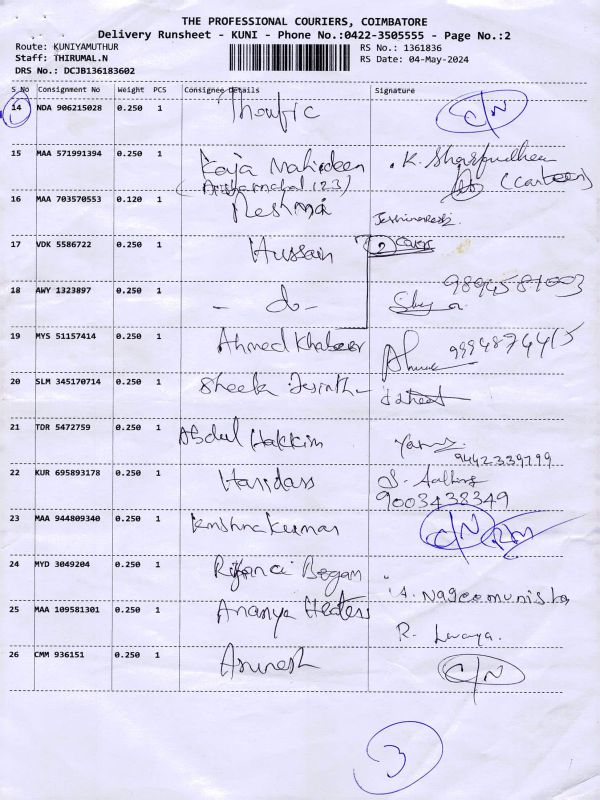 THE PROFESSIONAL COURIERS, COIMBATORE
Delivery Runsheet - KUNI - Phone No.:0422-3505555 - Page No.:2
Route: KUNIYAMUTHUR RS No.: 1361836
Staff: THIRUMAL.N RS Date: 04-May-2024
DRS No.: DCJB136183602
S No Consignment No Weight PCS Consignee Details Signature
14 NDA 906215028 0.250 1 Thoufic C/N
15 MAA 571991394 0.250 1 Kaja Mahideen K.
(23) (canteen)
16 MAA 703570553 0.120 1 Reshma
17 VDK 5586722 0.250 1 Hussain 2 covers
18 AWY 1323897 0.250 1 - do - 9894581003
19 MYS 51157414 0.250 1 Ahmed Khabeer 9994874415
20 SLM 345170714 0.250 1 Sheek
21 TDR 5472759 0.250 1 Abdul Hakkim
9442339799
22 KUR 695893178 0.250 1 Haridass S.
9003438349
23 MAA 944809340 0.250 1 Krishna Kumar C/N
24 MYD 3049204 0.250 1 Begam A. Nageemunisha
25 MAA 109581301 0.250 1 Ananya R.
26 CMM 936151 0.250 1 C/N
3